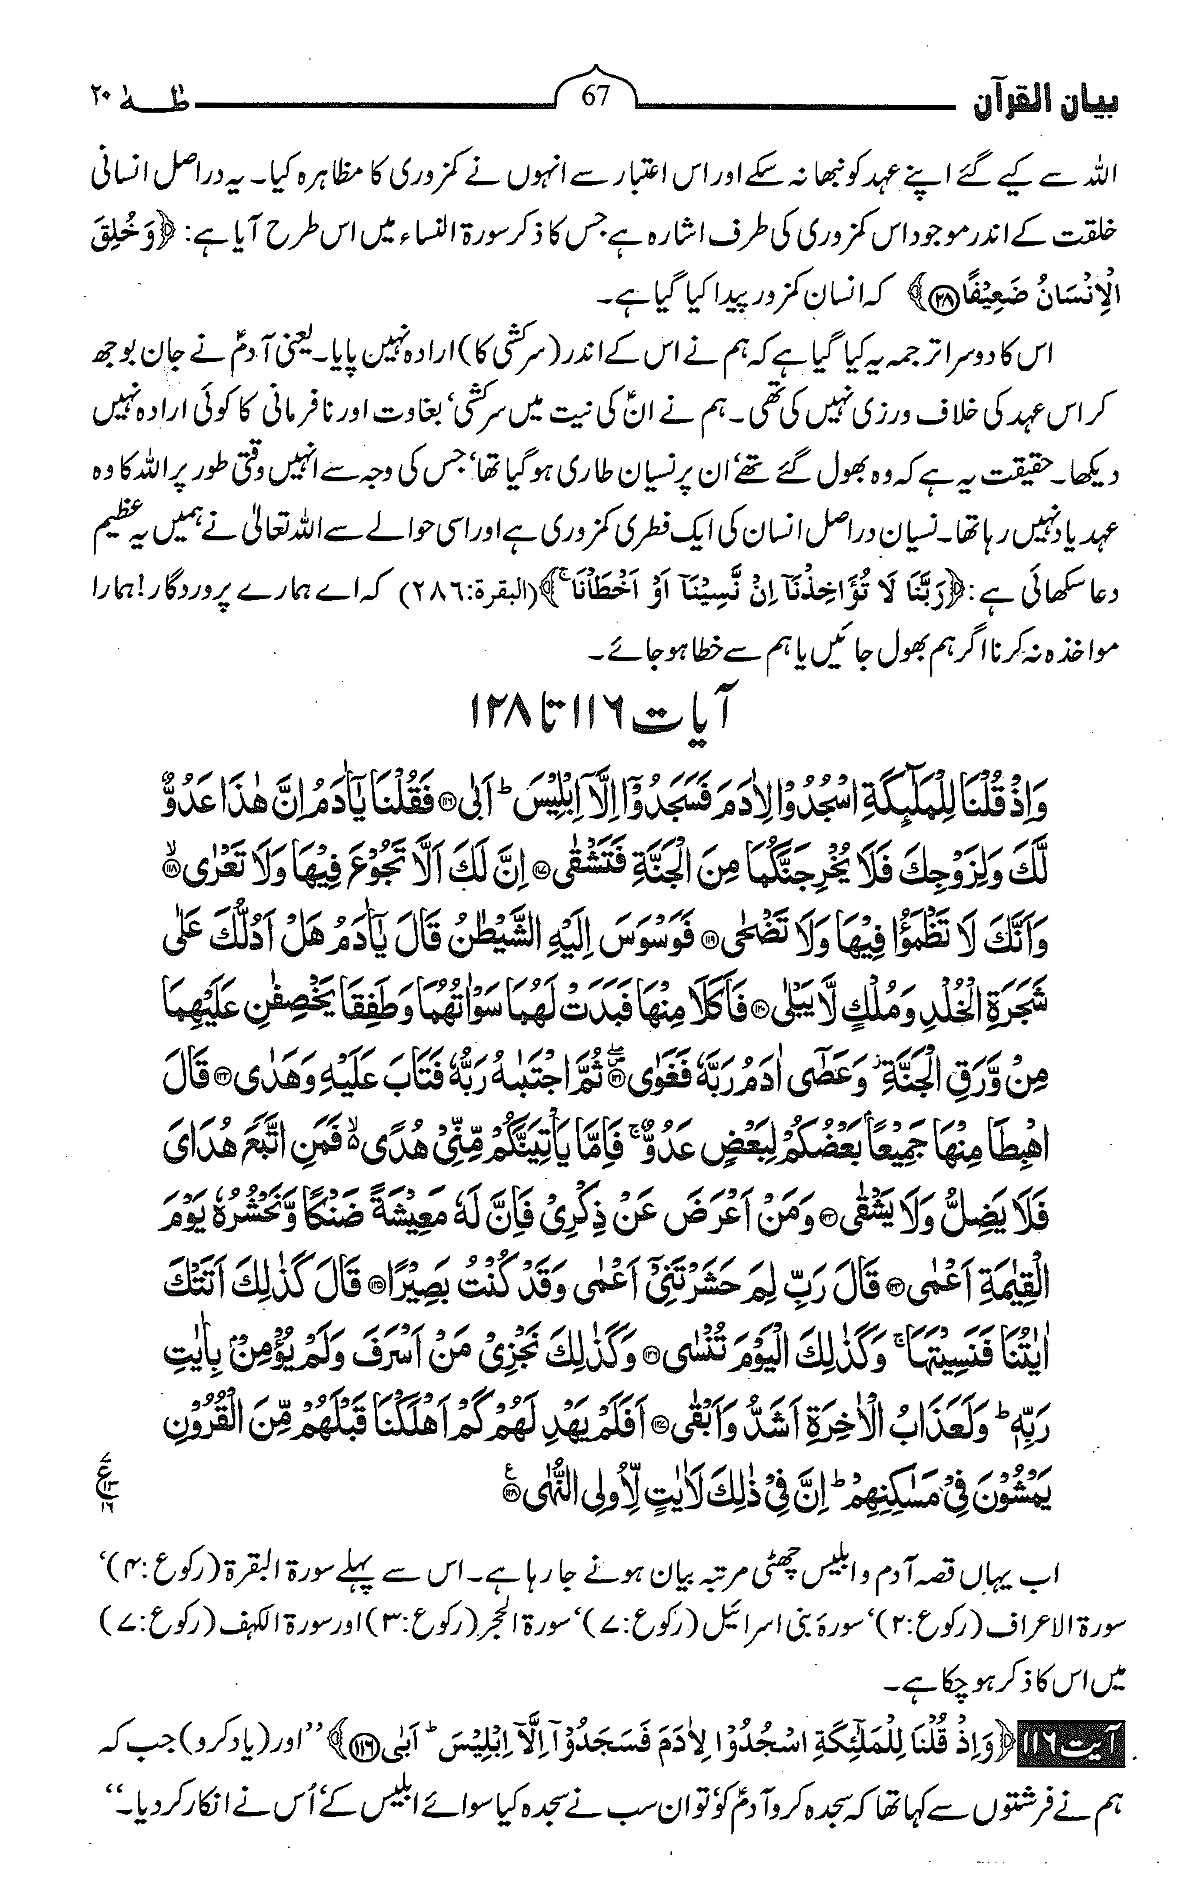 بیان القرآن 67 طٰہٰ ۲۰
اللہ سے کیے گئے اپنے عہد کو نبھا نہ سکے اور اس اعتبار سے انہوں نے کمزوری کا مظاہرہ کیا۔ یہ دراصل انسانی
خلقت کے اندر موجود اس کمزوری کی طرف اشارہ ہے جس کا ذکر سورۃ النساء میں اس طرح آیا ہے: ﴿وَخُلِقَ
الْاِنْسَانُ ضَعِيْفًا﴿۲۸﴾﴾ کہ انسان کمزور پیدا کیا گیا ہے۔
اس کا دوسرا ترجمہ یہ کیا گیا ہے کہ ہم نے اس کے اندر (سرکشی کا) ارادہ نہیں پایا۔ یعنی آدمؑ نے جان بوجھ
کر اس عہد کی خلاف ورزی نہیں کی تھی۔ ہم نے انؑ کی نیت میں سرکشی‘ بغاوت اور نافرمانی کا کوئی ارادہ نہیں
دیکھا۔ حقیقت یہ ہے کہ وہ بھول گئے تھے‘ ان پر نسیان طاری ہو گیا تھا‘ جس کی وجہ سے انہیں وقتی طور پر اللہ کا وہ
عہد یاد نہیں رہا تھا۔ نسیان دراصل انسان کی ایک فطری کمزوری ہے اور اسی حوالے سے اللہ تعالیٰ نے ہمیں یہ عظیم
دعا سکھائی ہے: ﴿رَبَّنَا لَا تُؤَاخِذْنَآ اِنْ نَّسِيْنَآ اَوْ اَخْطَاْنَا ۚ﴾ (البقرۃ:۲۸۶) کہ اے ہمارے پروردگار! ہمارا
مواخذہ نہ کرنا اگر ہم بھول جائیں یا ہم سے خطا ہو جائے۔
آیات ۱۱۶ تا ۱۲۸
وَاِذْ قُلْنَا لِلْمَلٰٓئِكَةِ اسْجُدُوْا لِاٰدَمَ فَسَجَدُوْٓا اِلَّآ اِبْلِيْسَ ؕ اَبٰى ﴿۱۱۶﴾ فَقُلْنَا يٰٓاٰدَمُ اِنَّ هٰذَا عَدُوٌّ
لَّكَ وَلِزَوْجِكَ فَلَا يُخْرِجَنَّكُمَا مِنَ الْجَنَّةِ فَتَشْقٰى ﴿۱۱۷﴾ اِنَّ لَكَ اَلَّا تَجُوْعَ فِيْهَا وَلَا تَعْرٰى ﴿۱۱۸﴾ ۙ
وَاَنَّكَ لَا تَظْمَؤُا فِيْهَا وَلَا تَضْحٰى ﴿۱۱۹﴾ فَوَسْوَسَ اِلَيْهِ الشَّيْطٰنُ قَالَ يٰٓاٰدَمُ هَلْ اَدُلُّكَ عَلٰى
شَجَرَةِ الْخُلْدِ وَمُلْكٍ لَّا يَبْلٰى ﴿۱۲۰﴾ فَاَكَلَا مِنْهَا فَبَدَتْ لَهُمَا سَوْاٰتُهُمَا وَطَفِقَا يَخْصِفٰنِ عَلَيْهِمَا
مِنْ وَّرَقِ الْجَنَّةِ ؗ وَعَصٰٓى اٰدَمُ رَبَّهٗ فَغَوٰى ﴿۱۲۱﴾ ثُمَّ اجْتَبٰهُ رَبُّهٗ فَتَابَ عَلَيْهِ وَهَدٰى ﴿۱۲۲﴾ قَالَ
اهْبِطَا مِنْهَا جَمِيْعًۢا بَعْضُكُمْ لِبَعْضٍ عَدُوٌّ ۚ فَاِمَّا يَاْتِيَنَّكُمْ مِّنِّيْ هُدًى ۙ فَمَنِ اتَّبَعَ هُدَايَ
فَلَا يَضِلُّ وَلَا يَشْقٰى ﴿۱۲۳﴾ وَمَنْ اَعْرَضَ عَنْ ذِكْرِيْ فَاِنَّ لَهٗ مَعِيْشَةً ضَنْكًا وَّنَحْشُرُهٗ يَوْمَ
الْقِيٰمَةِ اَعْمٰى ﴿۱۲۴﴾ قَالَ رَبِّ لِمَ حَشَرْتَنِيْٓ اَعْمٰى وَقَدْ كُنْتُ بَصِيْرًا ﴿۱۲۵﴾ قَالَ كَذٰلِكَ اَتَتْكَ
اٰيٰتُنَا فَنَسِيْتَهَا ۚ وَكَذٰلِكَ الْيَوْمَ تُنْسٰى ﴿۱۲۶﴾ وَكَذٰلِكَ نَجْزِيْ مَنْ اَسْرَفَ وَلَمْ يُؤْمِنْۢ بِاٰيٰتِ
رَبِّهٖ ؕ وَلَعَذَابُ الْاٰخِرَةِ اَشَدُّ وَاَبْقٰى ﴿۱۲۷﴾ اَفَلَمْ يَهْدِ لَهُمْ كَمْ اَهْلَكْنَا قَبْلَهُمْ مِّنَ الْقُرُوْنِ
يَمْشُوْنَ فِيْ مَسٰكِنِهِمْ ؕ اِنَّ فِيْ ذٰلِكَ لَاٰيٰتٍ لِّاُولِي النُّهٰى ﴿۱۲۸﴾ ع
اب یہاں قصہ آدم و ابلیس چھٹی مرتبہ بیان ہونے جا رہا ہے۔ اس سے پہلے سورۃ البقرۃ (رکوع:۴)‘
سورۃ الاعراف (رکوع:۲)‘ سورۂ بنی اسرائیل (رکوع:۷)‘ سورۃ الحجر (رکوع:۳) اور سورۃ الکہف (رکوع:۷)
میں اس کا ذکر ہو چکا ہے۔
آیت ۱۱۶ ﴿وَاِذْ قُلْنَا لِلْمَلٰٓئِكَةِ اسْجُدُوْا لِاٰدَمَ فَسَجَدُوْٓا اِلَّآ اِبْلِيْسَ ؕ اَبٰى ﴿۱۱۶﴾﴾ ’’اور (یاد کرو) جب کہ
ہم نے فرشتوں سے کہا تھا کہ سجدہ کرو آدمؑ کو‘ تو ان سب نے سجدہ کیا سوائے ابلیس کے‘ اُس نے انکار کر دیا۔‘‘